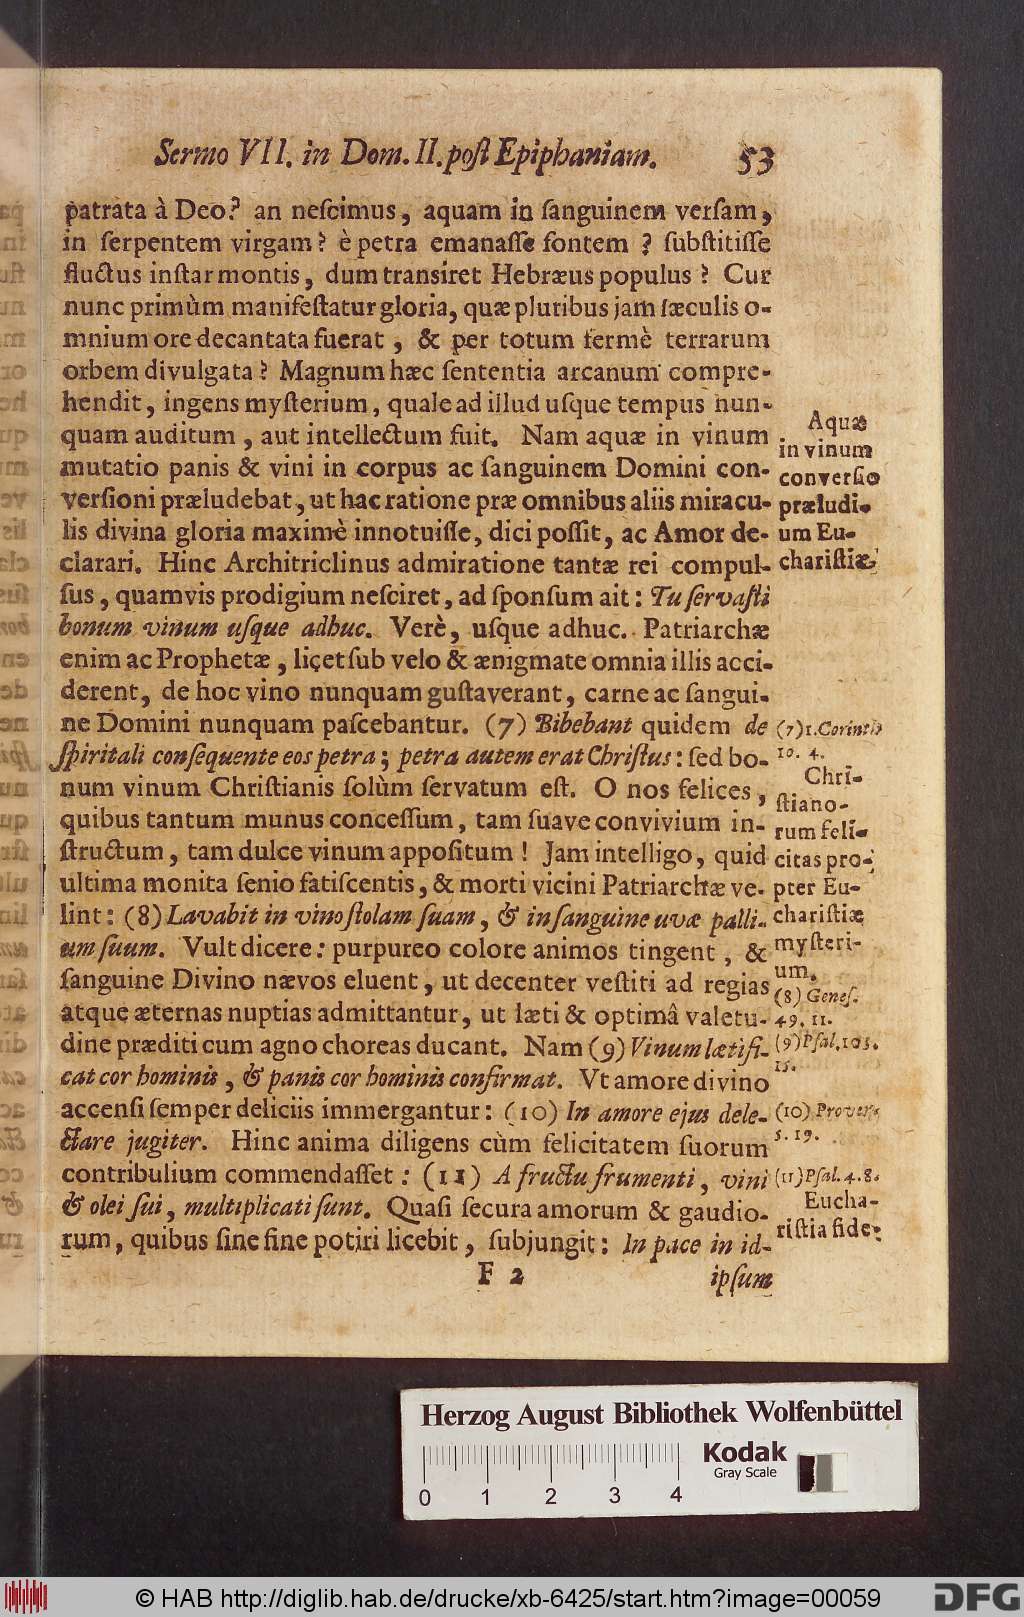 Sermo VII. in Dom. II. post Epiphaniam. 53
patrata à Deo? an nescimus, aquam in sanguinem versam,
in serpentem virgam? è petra emanasse fontem ? substitisse
fluctus instar montis, dum transiret Hebræus populus ? Cur
nunc primùm manifestatur gloria, quæ pluribus jam sæculis o-
mnium ore decantata fuerat, & per totum fermè terrarum
orbem divulgata? Magnum hæc sententia arcanum compre-
hendit, ingens mysterium, quale ad illud usque tempus nun-
quam auditum, aut intellectum fuit. Nam aquæ in vinum
mutatio panis & vini in corpus ac sanguinem Domini con-
versioni præludebat, ut hac ratione præ omnibus aliis miracu-
lis divina gloria maximè innotuisse, dici possit, ac Amor de-
clarari. Hinc Architriclinus admiratione tantæ rei compul-
sus, quamvis prodigium nesciret, ad sponsum ait: Tu servasti
bonum vinum usque adhuc. Verè, usque adhuc. Patriarchæ
enim ac Prophetæ, licet sub velo & ænigmate omnia illis acci-
derent, de hoc vino nunquam gustaverant, carne ac sangui-
ne Domini nunquam pascebantur. (7) Bibebant quidem de
spiritali consequente eos petra; petra autem erat Christus: sed bo-
num vinum Christianis solùm servatum est. O nos felices,
quibus tantum munus concessum, tam suave convivium in-
structum, tam dulce vinum appositum! Jam intelligo, quid
ultima monita senio fatiscentis, & morti vicini Patriarchæ ve-
lint: (8) Lavabit in vino stolam suam, & in sanguine uvæ palli-
um suum. Vult dicere: purpureo colore animos tingent, &
sanguine Divino nævos eluent, ut decenter vestiti ad regias
atque æternas nuptias admittantur, ut læti & optimâ valetu-
dine præditi cum agno choreas ducant. Nam (9) Vinum lætifi-
cat cor hominis, & panis cor hominis confirmat. Vt amore divino
accensi semper deliciis immergantur: (10) In amore ejus dele-
ctare jugiter. Hinc anima diligens cùm felicitatem suorum
contribulium commendasset: (11) A fructu frumenti, vini
& olei sui, multiplicati sunt. Quasi secura amorum & gaudio-
rum, quibus sine fine potiri licebit, subjungit: In pace in id-
F 2 ipsum
Aquæ
in vinum
conversio
præludi-
um Eu-
charistiæ.
(7) 1. Corinth
10. 4.
Chri-
stiano-
rum feli-
citas pro-
pter Eu-
charistiæ
mysteri-
um.
(8) Genes.
49. 11.
(9) Psal. 103.
15.
(10) Prover.
5. 19.
(11) Psal. 4. 8.
Eucha-
ristia fide-
Herzog August Bibliothek Wolfenbüttel
Kodak
Gray Scale
0 1 2 3 4
© HAB http://diglib.hab.de/drucke/xb-6425/start.htm?image=00059
DFG